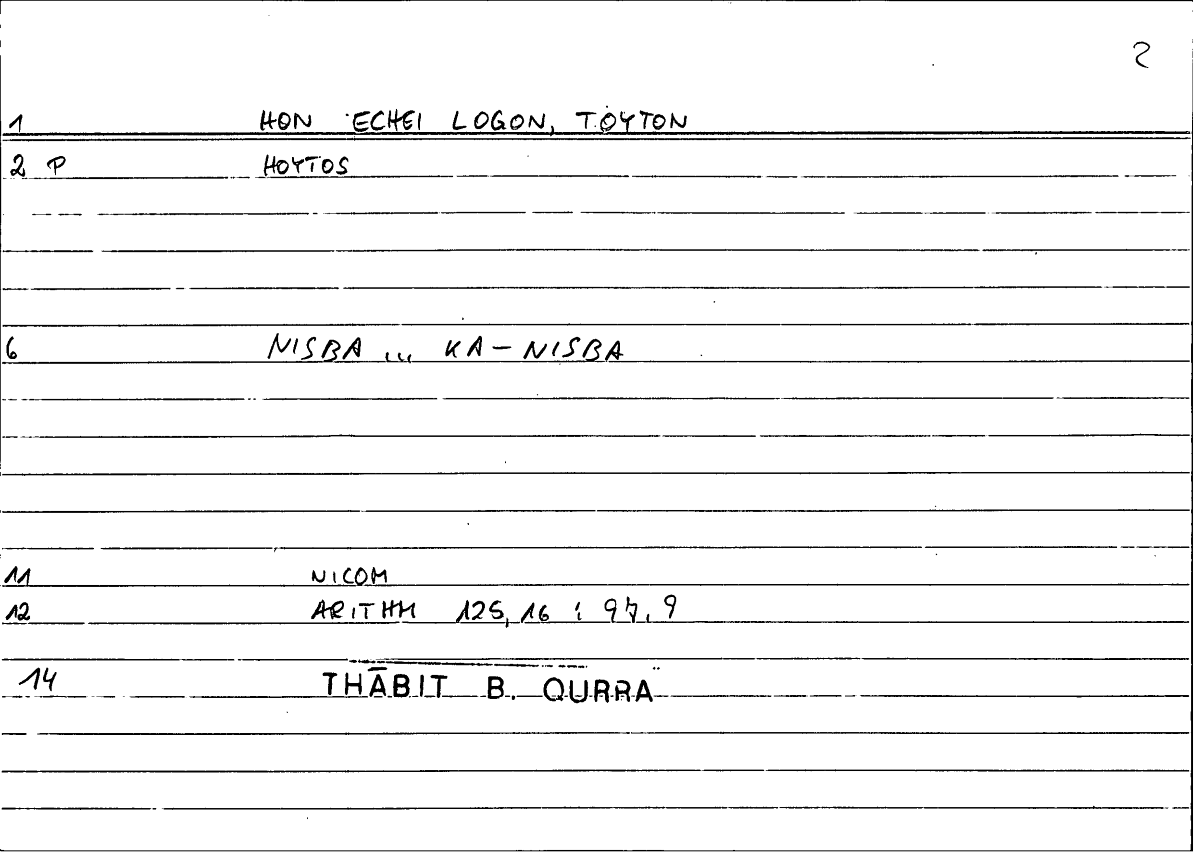 2
1 HON ECHEI LOGON, TOYTON
2 P HOYTOS
6 NISBA ... KA – NISBA
11 NICOM
12 ARITHM 125, 16 : 97, 9
14 THĀBIT B. QURRA